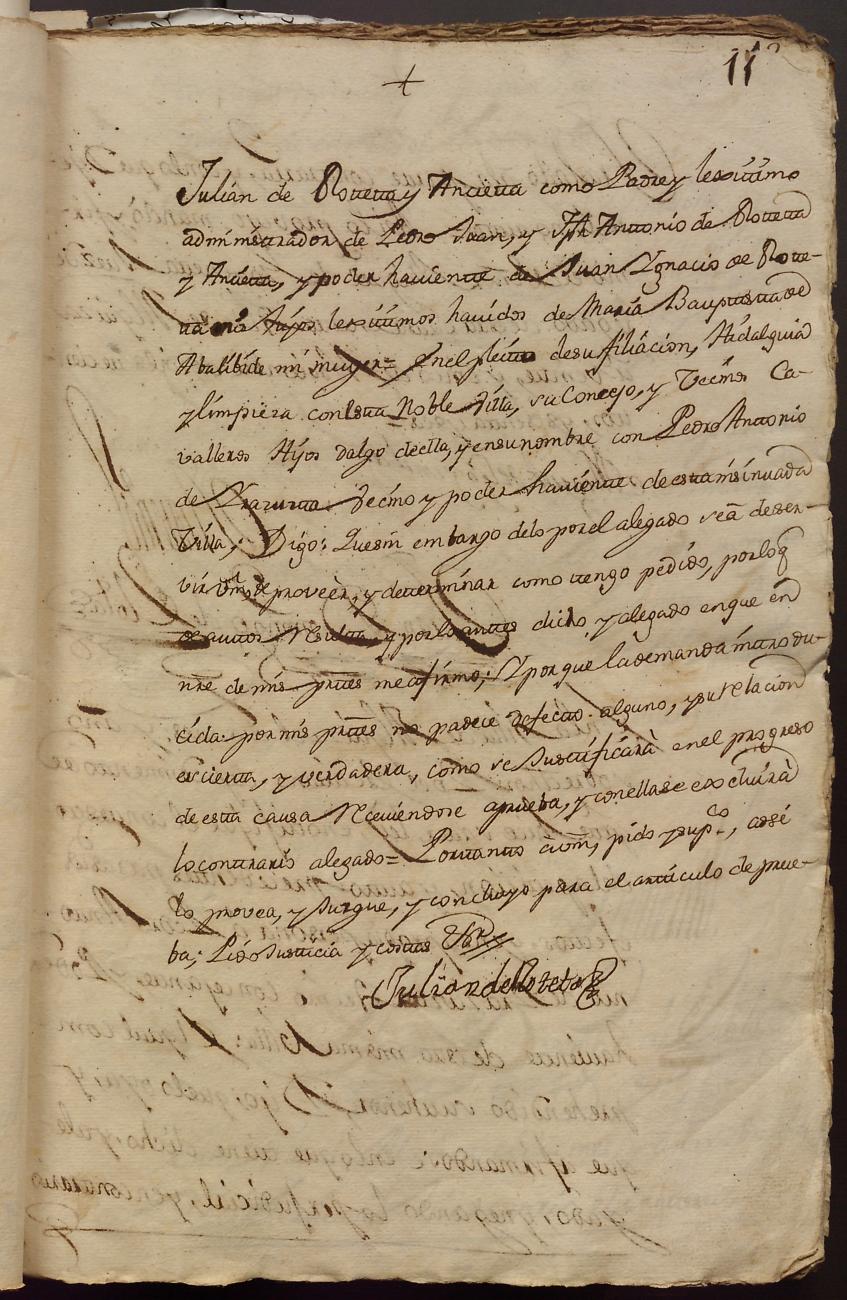 11
Julian de Rotteta y Ancieta como Padre y lexitimo
administrador de Pedro Juan, y Jph Anttonio de Rotteta
y Ancieta, y poder haviente de Juan Ygnacio de Rotte-
ta mis hijos lexitimos havidos de Maria Bauptista de
Abalibide mi muger = en el pleito de su filiacion, Hidalguia
y limpieza con esta Noble Villa, su Concejo, y Vecinos Ca-
valleros Hijos dalgo de ella, y en su nombre con Pedro Anttonio
de Vecino y poder haviente de esta insinuada
Villa, Digo: Que sin embargo de lo por el alegado se a de ser-
vir Vm, de proveer, y determinar como tengo pedido, por lo q
de auttos resulta, y por lo antes dicho, y alegado en que en
nre de mis prtes me afirmo; Y por que la demanda introdu-
cida por mis prtes no padece defecto alguno, y su relacion
es cierta, y verdadera, como se Justificarà en el progreso
de esta causa reciviendose a prueba, y con ella se excluirà
lo contrario alegado = Por tanto a Vm, pido y supco, asi
lo provea, y Juzgue, y concluyo para el articulo de prue-
ba; Pido Justicia y costas
Julian de Roteta